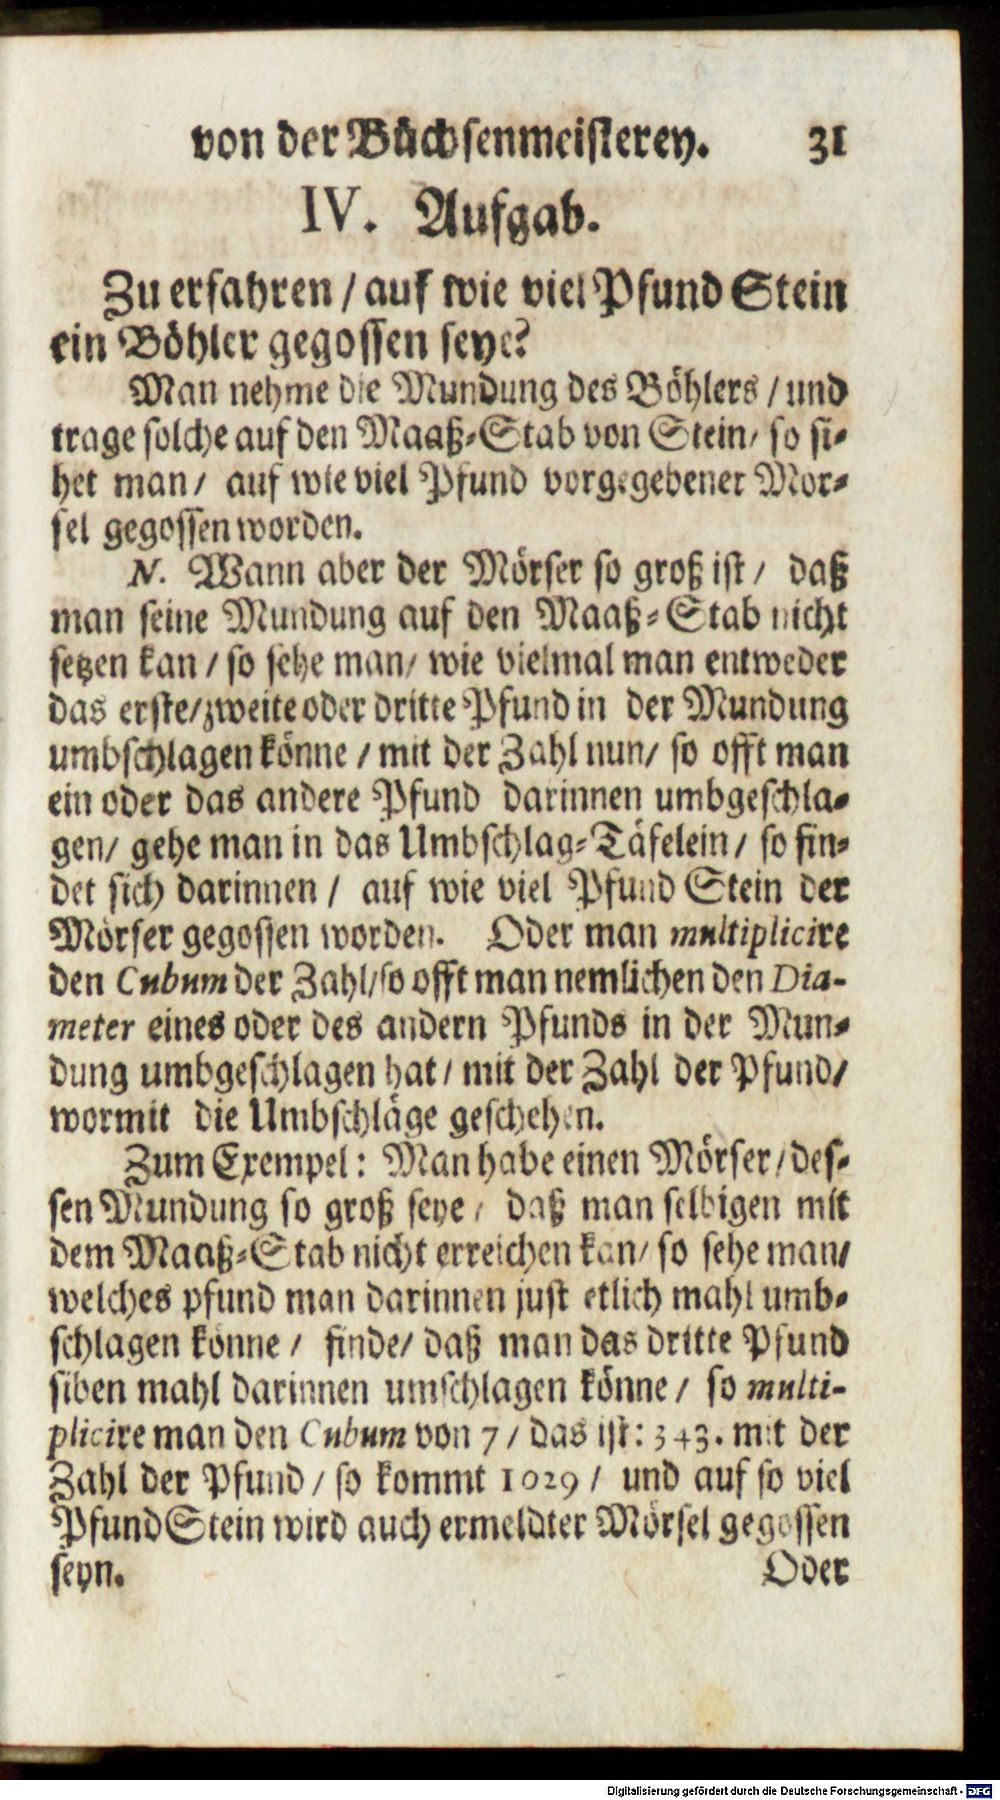 von der Büchsenmeisterey. 31
IV. Aufgab.
Zu erfahren / auf wie viel Pfund Stein
ein Böhler gegossen seye?
Man nehme die Mundung des Böhlers / und
trage solche auf den Maaß-Stab von Stein / so si-
het man / auf wie viel Pfund vorgegebener Mor-
sel gegossen worden.
N. Wann aber der Mörser so groß ist / daß
man seine Mundung auf den Maaß-Stab nicht
setzen kan / so sehe man / wie vielmal man entweder
das erste / zweite oder dritte Pfund in der Mundung
umbschlagen könne / mit der Zahl nun / so offt man
ein oder das andere Pfund darinnen umbgeschla-
gen / gehe man in das Umbschlag-Täfelein / so fin-
det sich darinnen / auf wie viel Pfund Stein der
Mörser gegossen worden. Oder man multiplicire
den Cubum der Zahl / so offt man nemlichen den Dia-
meter eines oder des andern Pfunds in der Mun-
dung umbgeschlagen hat / mit der Zahl der Pfund /
wormit die Umbschläge geschehen.
Zum Exempel: Man habe einen Mörser / des-
sen Mundung so groß seye / daß man selbigen mit
dem Maaß-Stab nicht erreichen kan / so sehe man /
welches pfund man darinnen just etlich mahl umb-
schlagen könne / finde / daß man das dritte Pfund
siben mahl darinnen umschlagen könne / so multi-
plicire man den Cubum von 7 / das ist: 343. mit der
Zahl der Pfund / so kommt 1029 / und auf so viel
Pfund Stein wird auch ermeldter Mörsel gegossen
seyn. Oder
Digitalisierung gefördert durch die Deutsche Forschungsgemeinschaft - DFG